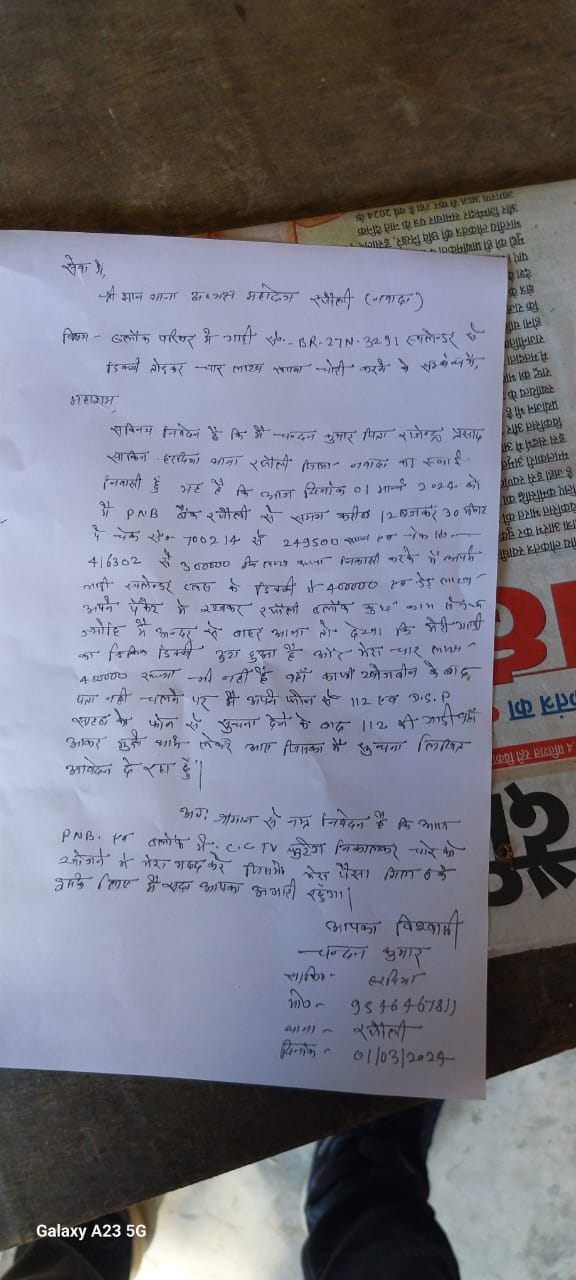 सेवा में,
श्री मान थाना अध्यक्ष महोदय रजौली (नवादा)
विषय - ब्लॉक परिसर में गाड़ी सं०- BR-27N-3291 स्पलेन्डर से
डिक्की तोड़कर चार लाख रूपया चोरी करने के सम्बन्ध में,
महाशय,
सविनय निवेदन है कि मैं चन्दन कुमार पिता राजेन्द्र प्रसाद
साकिन हरदिया थाना रजौली जिला- नवादा का स्थाई
निवासी हूँ यह है कि आज दिनांक 01 मार्च 2024 को
मैं PNB बैंक रजौली से समय करीब 12 बजकर 30 मिनट
पे चेक सं०- 700214 से 249500 रूपया एवं चेक नि०-
416302 से 300000 तीन लाख रूपया निकासी करके में अपने
गाड़ी स्पलेन्डर के डिक्की में 400000 एवं डेढ़ लाख
अपने पॉकेट में रखकर रजौली ब्लॉक कुछ काम से गया
ज्योहि मैं अन्दर से बाहर आया तो देखा कि मेरी गाड़ी
का डिक्की टुटा हुआ है और मेरा चार लाख
400000 रूपया भी नहीं है वहाँ काफी खोजबीन के बाद
पता नहीं चलने पर मैं अपने फोन से 112 एवं D.S.P
साहब के फोन से सुचना देने के बाद 112 की गाड़ी वहाँ
आकर मुझे साथ लेकर आए जिसका मैं सुचना लिखित
आवेदन दे रहा हूँ|
अतः श्रीमान से नम्र निवेदन है कि आप
PNB. एवं ब्लॉक में C.C TV फुटेज निकालकर चोर को
खोजने में मेरा मदद करे जिससे मेरा पैसा मिल सके
इसके लिए मैं सदा आपका आभारी रहुँगा|
आपका विश्वासी
चन्दन कुमार
साकिन- हरदिया
मो०- 9546467811
थाना- रजौली
दिनांक- 01/03/2024
Galaxy A23 5G